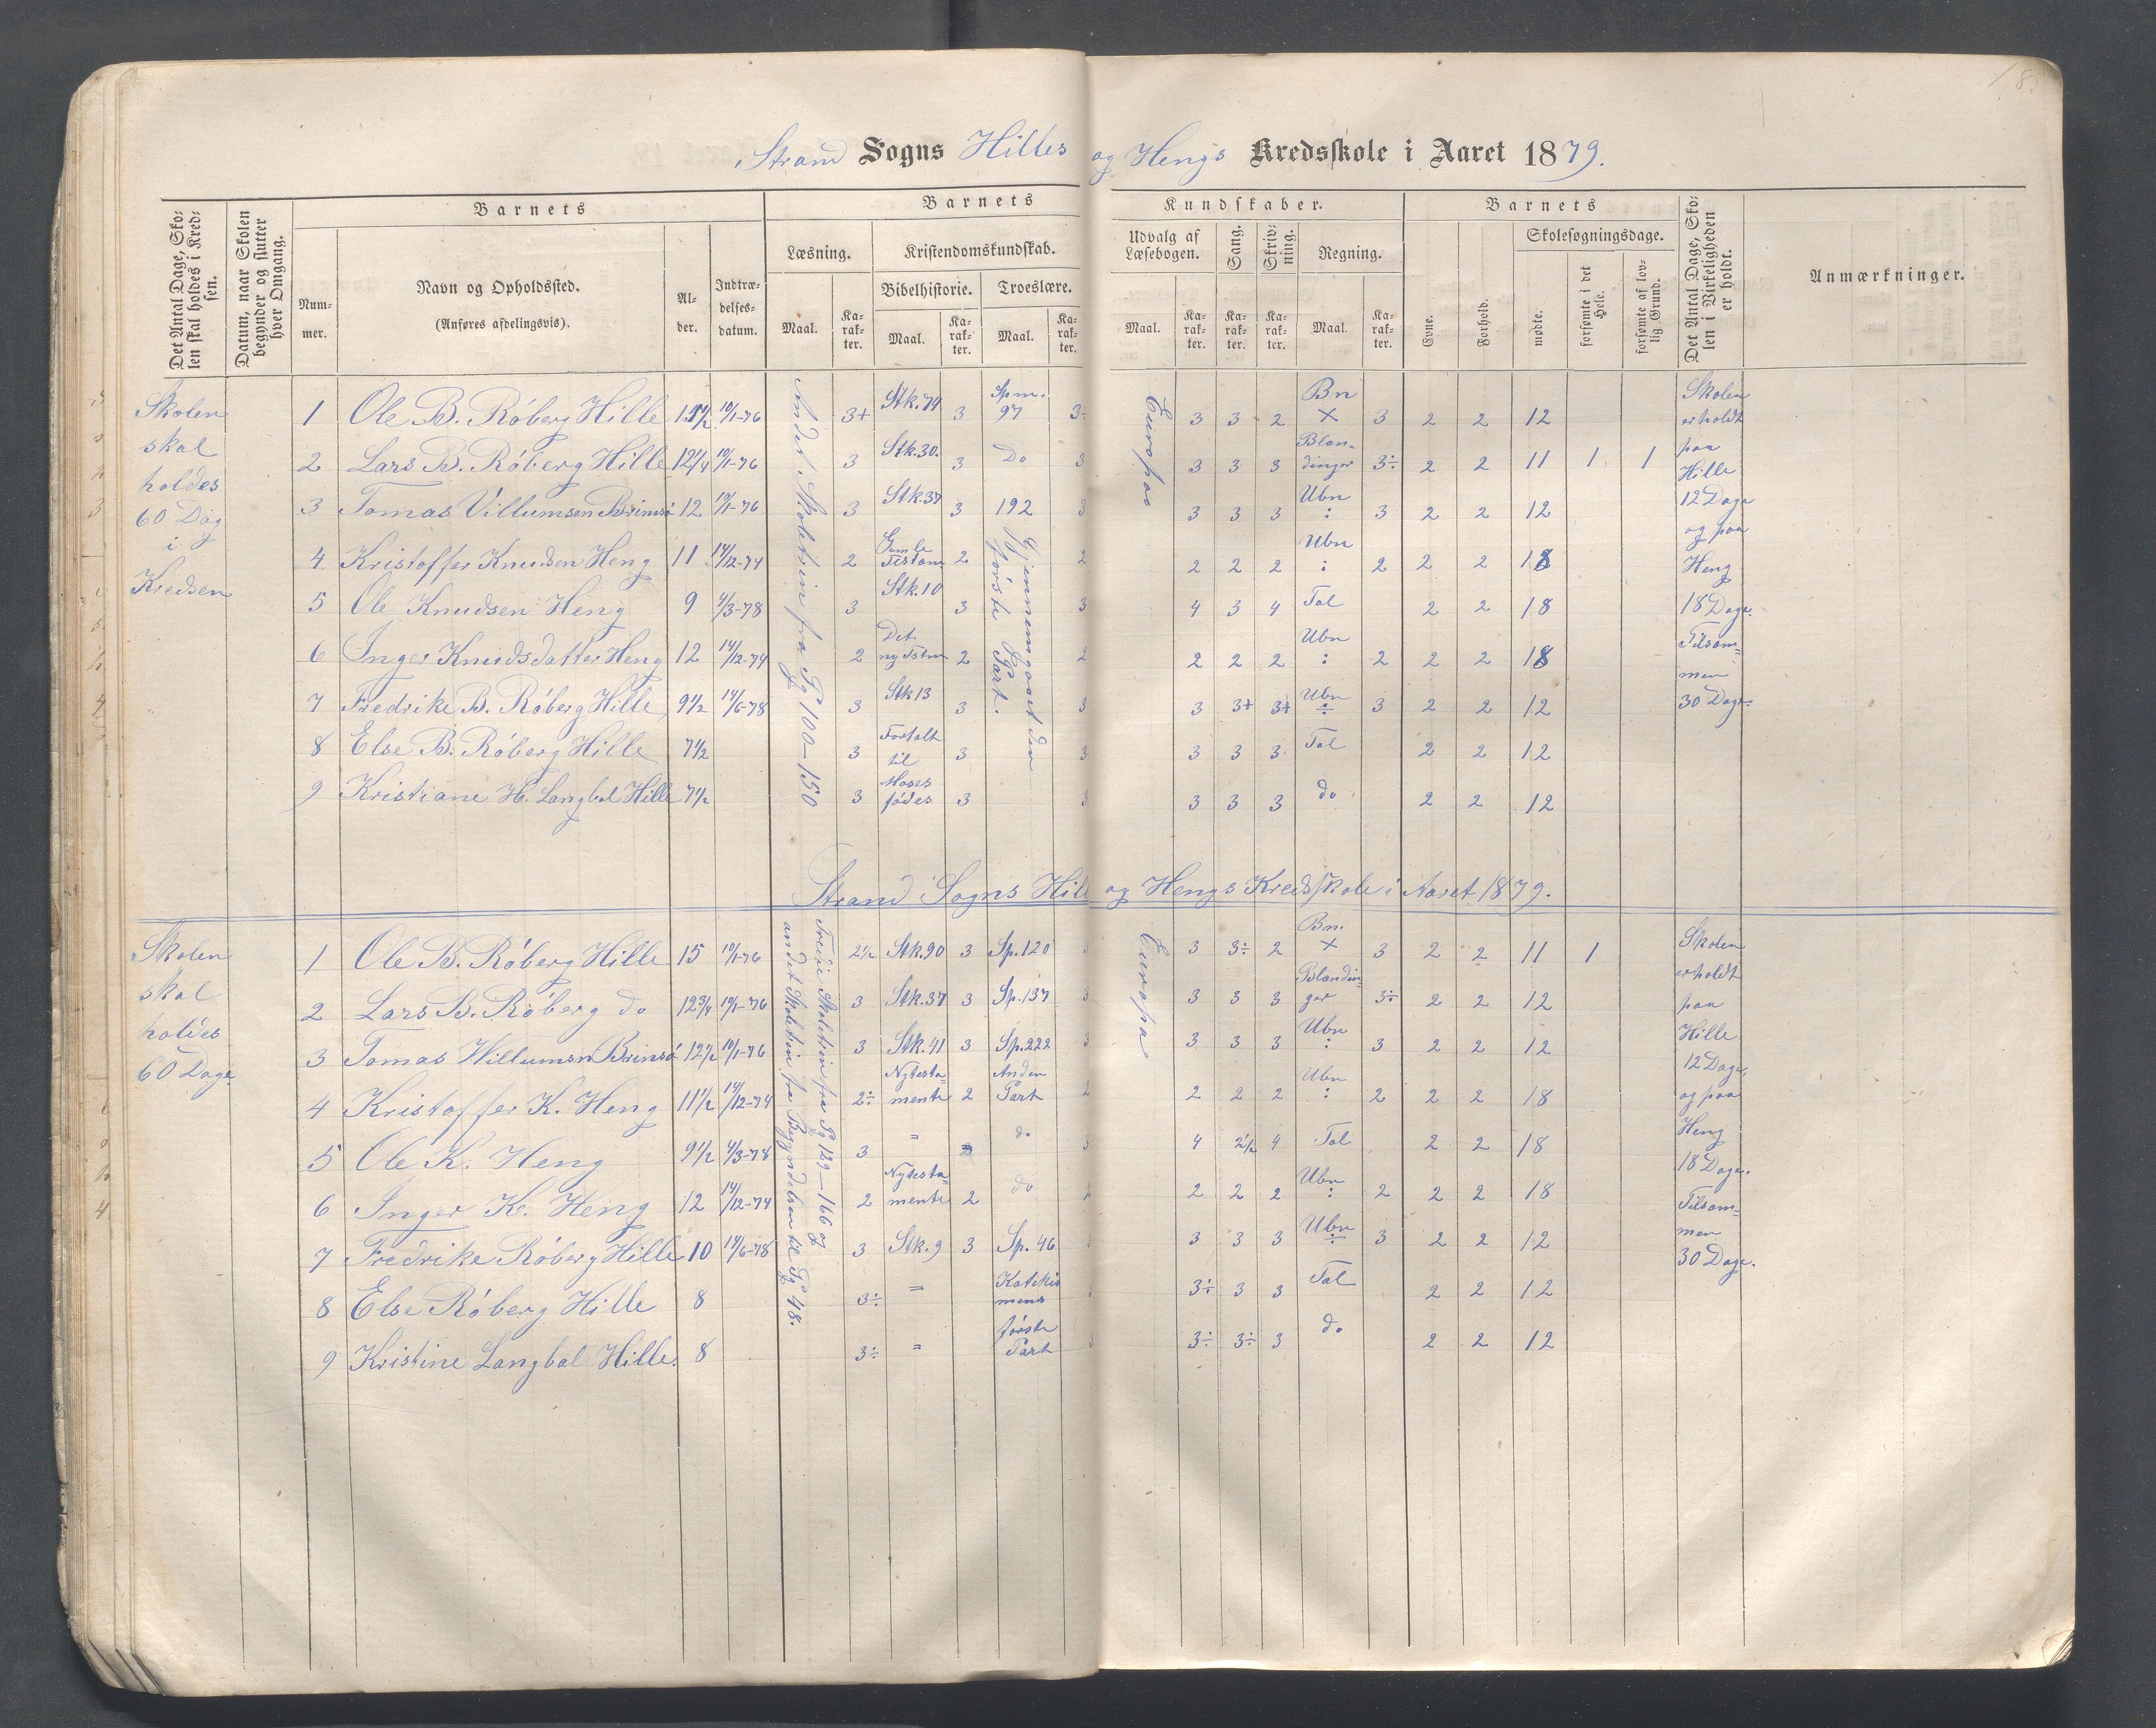 8.
Strand Sogns Hilles og Hengs Kredsskole i Aaret 1879.
Det Antal Dage, Skolen skal holdes i Kredsen.
Datum, naar Skolen begynder og slutter hver Omgang.
Barnets
Nummer.
Navn og Opholdssted.
(Anføres afdelingsvis).
Alder.
Indtrædelsesdatum.
Barnets Kundskaber.
Læsning.
Maal.
Karakter.
Kristendomskundskab.
Bibelhistorie.
Maal.
Karakter.
Troeslære.
Maal.
Karakter.
Udvalg af Læsebogen.
Maal.
Karakter.
Sang.
Karakter.
Skrivning.
Karakter.
Regning.
Maal.
Karakter.
Barnets
Evne.
Forhold.
Skolesøgningsdage.
mødte.
forsømte i det Hele.
forsømte af lovlig Grund.
Det Antal Dage, Skolen i Virkeligheden er holdt.
Anmærkninger.
Skolen skal holdes 60 Dag i Kredsen
Andet Skoletrin fra Pg 100-150
Gjennemgaaet den første Part.
Europa
1 Ole B. Röberg Hille 10/1-76 3+ Stk. 74 3 Spm. 97 3÷ 3 3 2 Bn × 3 2 2 12
2 Lars B. Röberg Hille 12 1/4 10/1-76 3 Stk. 30. 3 Do 3 3 3 3 Blandinger 3÷ 2 2 11 1 1
3 Tomas Villumsen Brinsö 12 10/1-76 3 Stk. 37 3 192 3 3 3 3 Ubn : 3 2 2 12
4 Kristoffer Knudsen Heng 11 14/12-74 2 Gamle Testam 2 2 2 2 2 Ubn : 2 2 2 18
5 Ole Knudsen Heng 9 4/3-78 3 Stk. 10 3 3 4 3 4 Tal 2 2 18
6 Inger Knudsdatter Heng 12 14/12-74 2 Det ny Tstm 2 2 2 2 2 Ubn : 2 2 2 18
7 Fredrike B. Röberg Hille 9 1/2 14/6-78 3 Stk 13 3 3 3 3+ 3+ Ubn ÷ 3 2 2 12
8 Else B. Röberg Hille 7 1/2 3 Fortalt til 3 3 3 3 3 Tal 2 2 12
9 Kristiane H. Langbal Hille 7 1/2 3 Moses födes 3 3 3 3 3 do 2 2 12
Skolen er holdt paa Hille 12 Dage og paa Heng 18 Dage. Tilsammen 30 Dage.
Strand Sogns Hill og Hengs Kredsskole i Aaret 1879.
Skolen skal holdes 60 Dage
Tredie Skoletrin fra Pg 129-166 og
andet Skoletrin fra Begyndelsen til Pg 48.
Europa
1 Ole B. Röberg Hille 15 10/1-76 2 1/2 Stk. 90 3 Sp. 120 3 3 3÷ 2 Bn. × 3 2 2 11 1
2 Lars B. Röberg do 12 3/4 10/1-76 3 Stk. 37 3 Sp. 137 3 3 3 3 Blandinger 3÷ 2 2 12
3 Tomas Willumsn Brinsö 12 1/2 10/1-76 3 Stk. 41 3 Sp. 222 3 3 3 3 Ubn : 3 2 2 12
4 Kristoffer K. Heng 11 1/2 14/12-74 2÷ Nytestamente 2 Anden Part 2 2 2 2 Ubn : 2 2 2 18
5 Ole K. Heng 9 1/2 4/3-78 3 = do 3 4 2 1/2 4 Tal 2 2 18
6 Inger K. Heng 12 14/12-74 2 Nytestamente 2 do 2 2 2 2 Ubn : 2 2 2 18
7 Fredrike Röberg Hille 10 14/6-78 3 Stk. 9 3 Sp. 46 3 3 3 Ubn ÷ 3 2 2 12
8 Else Röberg Hille 8 3÷ = Katekismens 3÷ 3 3 Tal 2 2 12
9 Kristine Langbal Hille. 8 3÷ = förste Part 3÷ 3÷ 3 do 2 2 12
Skolen er holdt paa Hille 12 Dage, og paa Heng 18 Dage. Tilsammen 30 Dage.